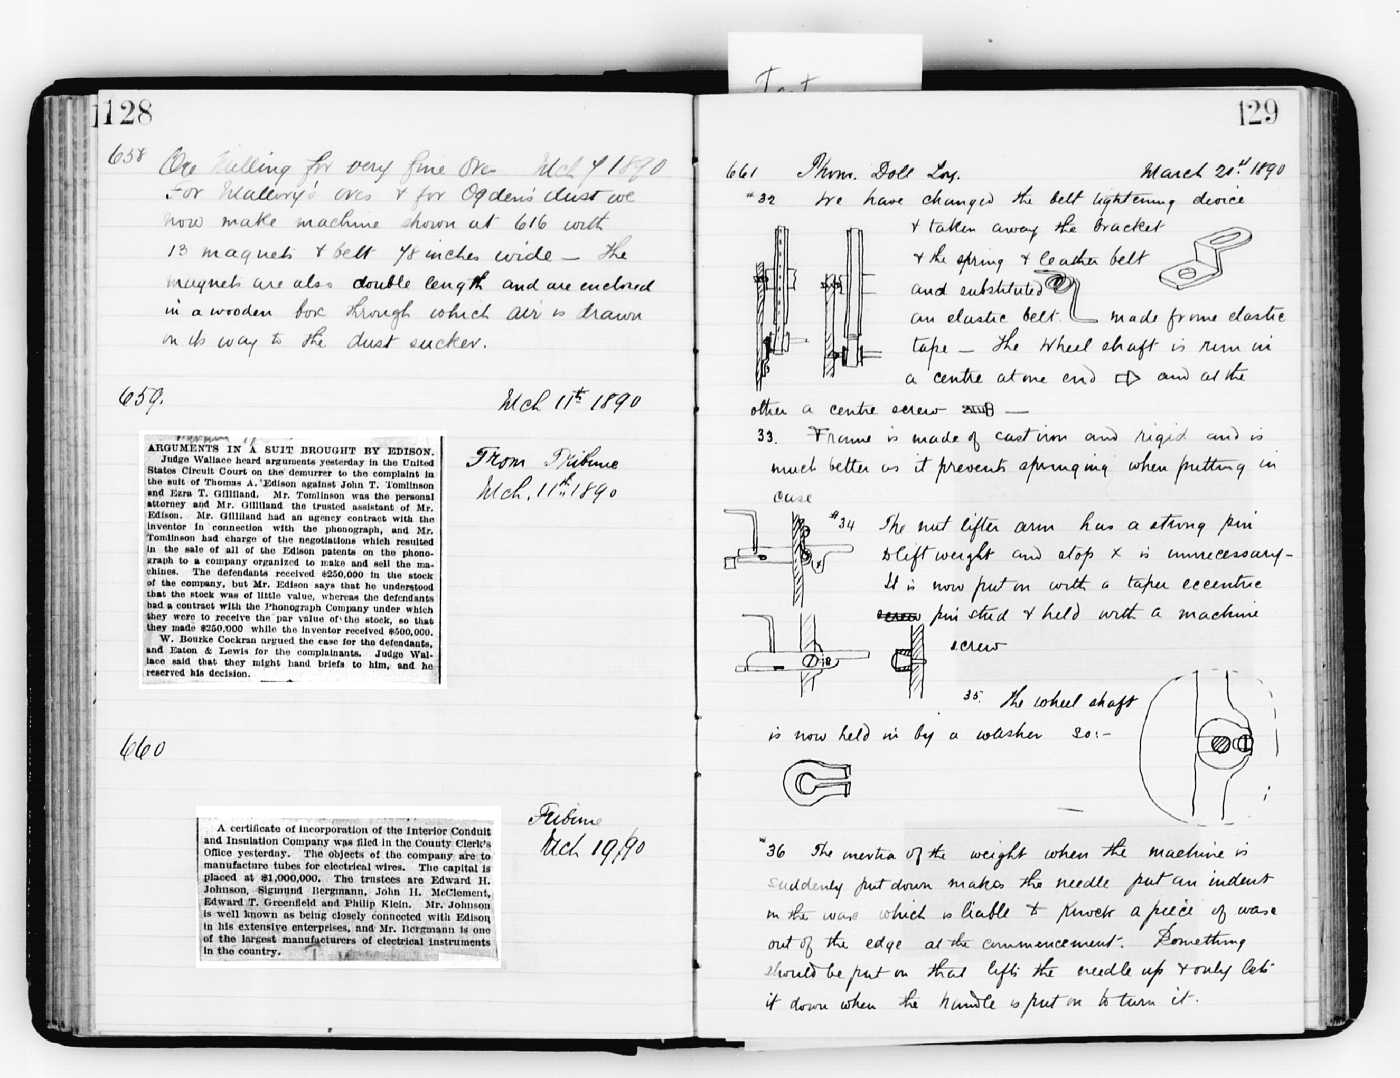 128
658 Ore Milling for very fine Ore Mch 7 1890
For Mallory's ores & for Ogden's dust we
now make machine shown at 616 with
13 magnets & belt 48 inches wide — The
magnets are also double length and are enclosed
in a wooden box through which air is drawn
on its way to the dust sucker.
659. Mch 11th 1890
ARGUMENTS IN A SUIT BROUGHT BY EDISON.
Judge Wallace heard arguments yesterday in the United
States Circuit Court on the demurrer to the complaint in
the suit of Thomas A. Edison against John T. Tomlinson
and Ezra T. Gilliland. Mr. Tomlinson was the personal
attorney and Mr. Gilliland the trusted assistant of Mr.
Edison. Mr. Gilliland had an agency contract with the
inventor in connection with the phonograph, and Mr.
Tomlinson had charge of the negotiations which resulted
in the sale of all of the Edison patents on the phono-
graph to a company organized to make and sell the ma-
chines. The defendants received $250,000 in the stock
of the company, but Mr. Edison says that he understood
that the stock was of little value, whereas the defendants
had a contract with the Phonograph Company under which
they were to receive the par value of the stock, so that
they made $250,000 while the inventor received $500,000.
W. Bourke Cockran argued the case for the defendants,
and Eaton & Lewis for the complainants. Judge Wal-
lace said that they might hand briefs to him, and he
reserved his decision.
From Tribune
Mch. 11th 1890
660
A certificate of incorporation of the Interior Conduit
and Insulation Company was filed in the County Clerk's
Office yesterday. The objects of the company are to
manufacture tubes for electrical wires. The capital is
placed at $1,000,000. The trustees are Edward H.
Johnson, Sigmund Bergmann, John H. McClement,
Edward T. Greenfield and Philip Klein. Mr. Johnson
is well known as being closely connected with Edison
in his extensive enterprises, and Mr. Bergmann is one
of the largest manufacturers of electrical instruments
in the country.
Tribune
Mch 19/90
129
661 Phon. Doll Toy. March 21st 1890
#32 We have changed the belt tightening device
& taken away the bracket
& the spring & leather belt
and substituted
an elastic belt made from elastic
tape — The wheel shaft is run in
a centre at one end and at the
other a centre screw —
33. Frame is made of cast iron and rigid and is
much better as it prevents springing when putting in
case
#34 The nut lifter arm has a strong pin
to lift weight and stop x is unnecessary —
It is now put on with a taper eccentric
pin stud & held with a machine
screw
35. The wheel shaft
is now held in by a washer so:-
#36 The inertia of the weight when the machine is
suddenly put down makes the needle put an indent
in the wax which is liable to knock a piece of wax
out of the edge at the commencement. Something
should be put on that lifts the needle up & only lets
it down when the handle is put on to turn it.